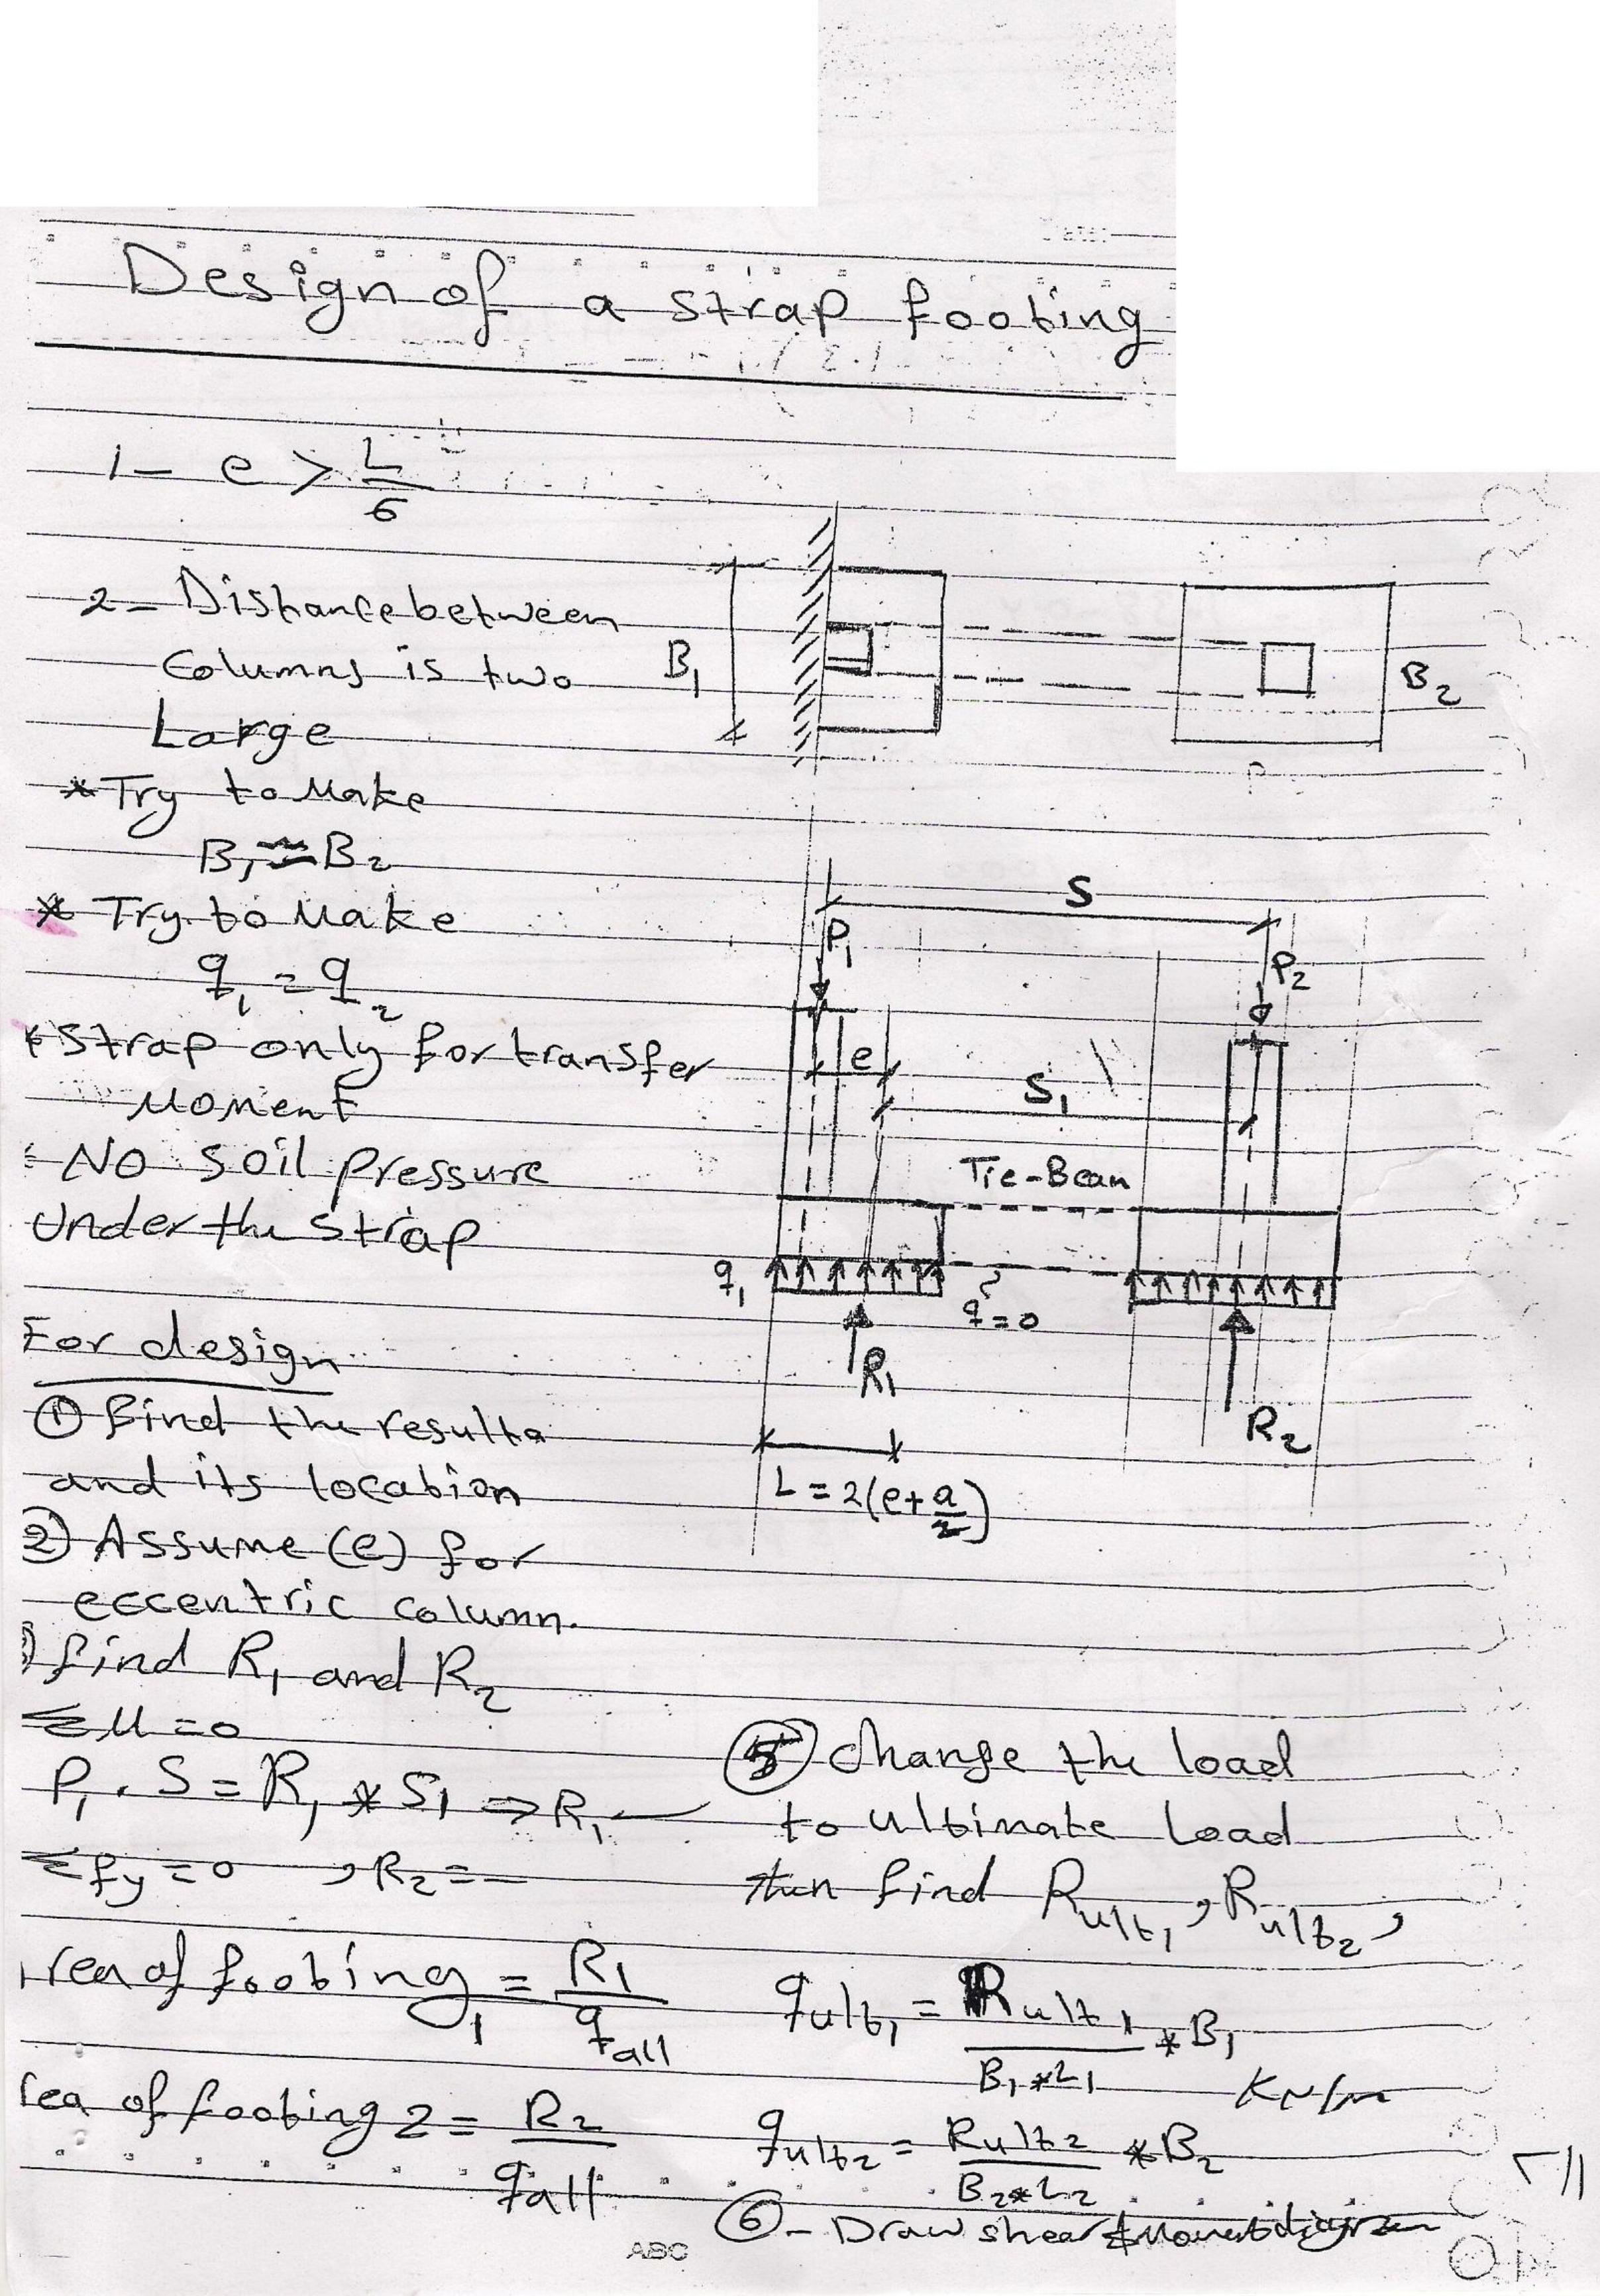 Design of a strap footing
1- e > L/6
2- Distance between
Columns is two
Large
* Try to Make
B1 ≈ B2
* Try to Make
q1 = q2
* Strap only for transfer
Moment
No soil pressure
Under the strap
B1
B2
S
P1
P2
e
S1
Tie-Beam
q1
q=0
R1
R2
L = 2(e+a/2)
For design
① Find the resulta
and its location
2) Assume (e) for
eccentric column.
) find R1 and R2
ΣM=0
P1 . S = R1 * S1 ⇒ R1 —
Σfy = 0 , R2 = —
rea of footing1 = R1/qall
rea of footing 2 = R2/qall
⑤ change the load
to ultimate load
then find Rult1 , Rult2 ,
qult1 = Rult1/B1*L1 * B1
KN/m
qult2 = Rult2/B2*L2 * B2
⑥- Draw shear & Moment diagram
ABC